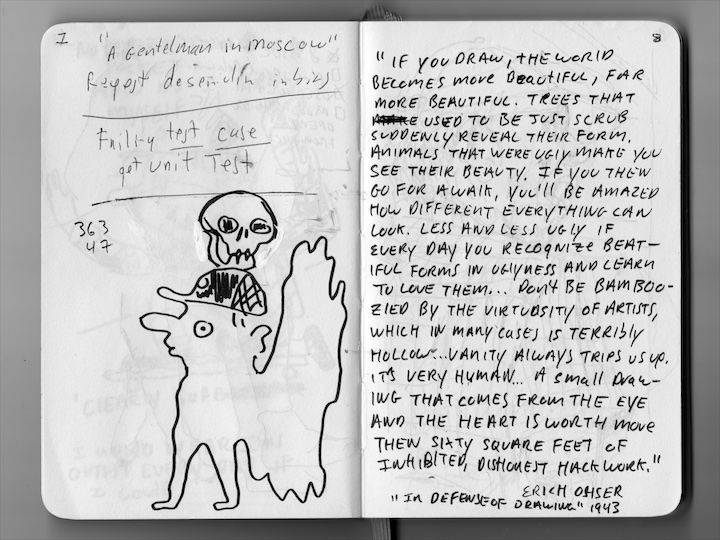 7
"A Gentelman in moscow"
Failing test case
get unit Test
363
47
8
"IF YOU DRAW, THE WORLD
BECOMES MORE BEAUTIFUL, FAR
MORE BEAUTIFUL. TREES THAT
USED TO BE JUST SCRUB
SUDDENLY REVEAL THEIR FORM.
ANIMALS THAT WERE UGLY MAKE YOU
SEE THEIR BEAUTY. IF YOU THEN
GO FOR A WALK, YOU'LL BE AMAZED
HOW DIFFERENT EVERYTHING CAN
LOOK. LESS AND LESS UGLY IF
EVERY DAY YOU RECOGNIZE BEAT-
IFUL FORMS IN UGLYNESS AND LEARN
TO LOVE THEM... DON'T BE BAMBOO-
ZLED BY THE VIRTUOSITY OF ARTISTS,
WHICH IN MANY CASES IS TERRIBLY
HOLLOW...VANITY ALWAYS TRIPS US UP.
ITS VERY HUMAN... A SMALL DRAW-
ING THAT COMES FROM THE EYE
AND THE HEART IS WORTH MORE
THEN SIXTY SQUARE FEET OF
INHIBITED, DISHONEST HACKWORK."
ERICH OHSER
"IN DEFENSE OF DRAWING" 1943